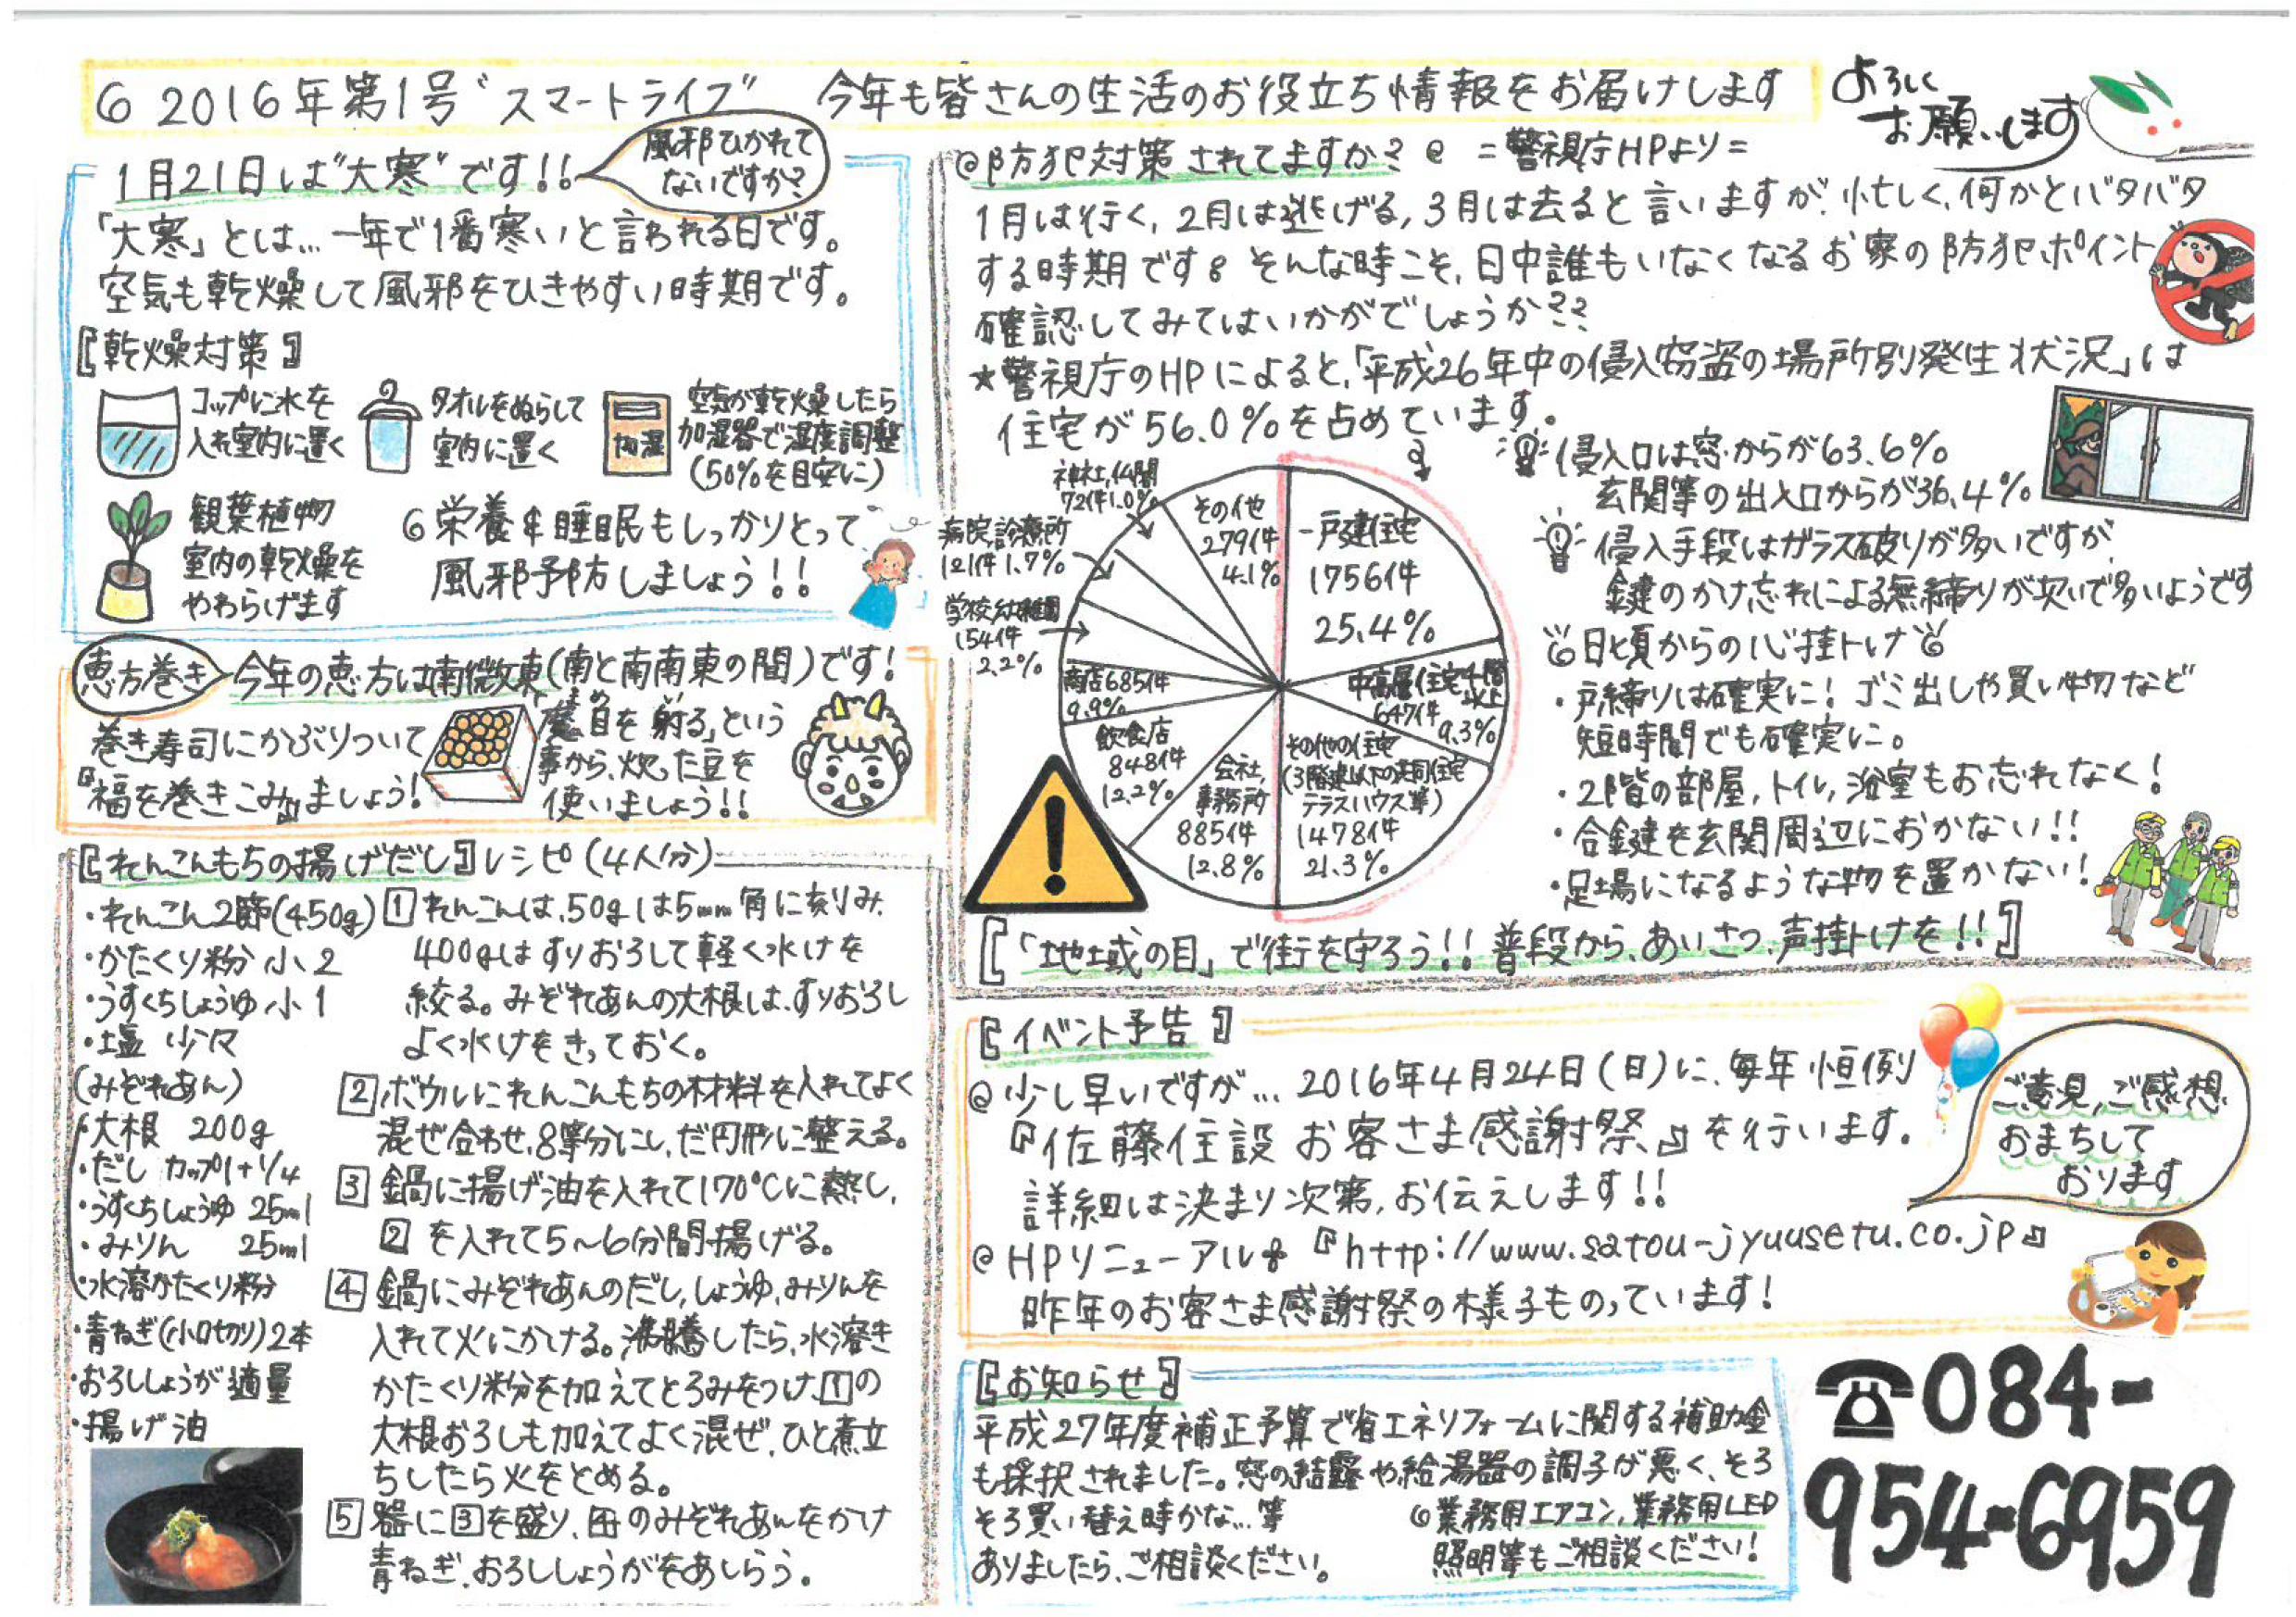 ◎ 2016年第1号 "スマートライフ" 今年も皆さんの生活のお役立ち情報をお届けします
よろしく
お願いします
1月21日は"大寒"です!!
風邪ひかれて
ないですか?
「大寒」とは…一年で1番寒いと言われる日です。
空気も乾燥して風邪をひきやすい時期です。
【乾燥対策】
コップに水を
入れ室内に置く
タオルをぬらして
室内に置く
加湿
空気が乾燥したら
加湿器で湿度調整
(50%を目安に)
観葉植物
室内の乾燥を
やわらげます
◎栄養&睡眠もしっかりとって
風邪予防しましょう!!
恵方巻き
今年の恵方は南微東(南と南南東の間)です!
巻き寿司にかぶりついて
『福を巻きこみ』ましょう!
「魔目を射る」という
まめ い
事から、炊った豆を
使いましょう!!
【れんこんもちの揚げだし】レシピ(4人分)
・れんこん2節(450g)
・かたくり粉 小2
・うすくちしょうゆ 小1
・塩 少々
(みぞれあん)
・大根 200g
・だし カップ1+1/4
・うすくちしょうゆ 25ml
・みりん 25ml
・水溶かたくり粉
・青ねぎ(小口切り)2本
・おろししょうが 適量
・揚げ油
1 れんこんは、50gは5mm角に刻み、
400gはすりおろして軽く水けを
絞る。みぞれあんの大根は、すりおろし
よく水けをきっておく。
2 ボウルにれんこんもちの材料を入れてよく
混ぜ合わせ、8等分にし、だ円形に整える。
3 鍋に揚げ油を入れて170℃に熱し、
2 を入れて5〜6分間揚げる。
4 鍋にみぞれあんのだし、しょうゆ、みりんを
入れて火にかける。沸騰したら、水溶き
かたくり粉を加えてとろみをつけ、1の
大根おろしも加えてよく混ぜ、ひと煮立
ちしたら火をとめる。
5 器に3を盛り、4のみぞれあんをかけ
青ねぎ、おろししょうがをあしらう。
◎防犯対策されてますか?◎ =警視庁HPより=
1月は行く, 2月は逃げる, 3月は去ると言いますが、忙しく、何かとバタバタ
する時期です。そんな時こそ、日中誰もいなくなるお家の防犯ポイント
確認してみてはいかがでしょうか??
★警視庁のHPによると、「平成26年中の侵入窃盗の場所別発生状況」は
住宅が56.0%を占めています。
一戸建住宅
1756件
25.4%
中高層住宅4階以上
647件
9.3%
その他の住宅
(3階建以下の共同住宅
テラスハウス等)
1478件
21.3%
会社,
事務所
885件
12.8%
飲食店
848件
12.2%
商店685件
9.9%
学校,幼稚園
154件
2.2%
病院,診療所
121件 1.7%
神社,仏閣
72件1.0%
その他
279件
4.1%
侵入口は窓からが63.6%
玄関等の出入口からが36.4%
侵入手段はガラス破りが多いですが、
鍵のかけ忘れによる無締りが次いで多いようです
日頃からの心掛け
・戸締りは確実に!ゴミ出しや買い物など
短時間でも確実に。
・2階の部屋,トイレ,浴室もお忘れなく!
・合鍵を玄関周辺におかない!!
・足場になるような物を置かない!
【「地域の目」で街を守ろう!!普段から、あいさつ、声掛けを!!】
【イベント予告】
◎少し早いですが… 2016年4月24日(日)に、毎年恒例
『佐藤住設 お客さま感謝祭』を行います。
詳細は決まり次第、お伝えします!!
◎HPリニューアル 『http://www.satou-jyuusetu.co.jp』
昨年のお客さま感謝祭の様子ものっています!
ご意見、ご感想
おまちして
おります
【お知らせ】
平成27年度補正予算で省エネリフォームに関する補助金
も採択されました。窓の結露や給湯器の調子が悪く、そろ
そろ買い替え時かな…等
ありましたら、ご相談ください。
◎業務用エアコン、業務用LED
照明等もご相談ください!
☎084-
954-6959